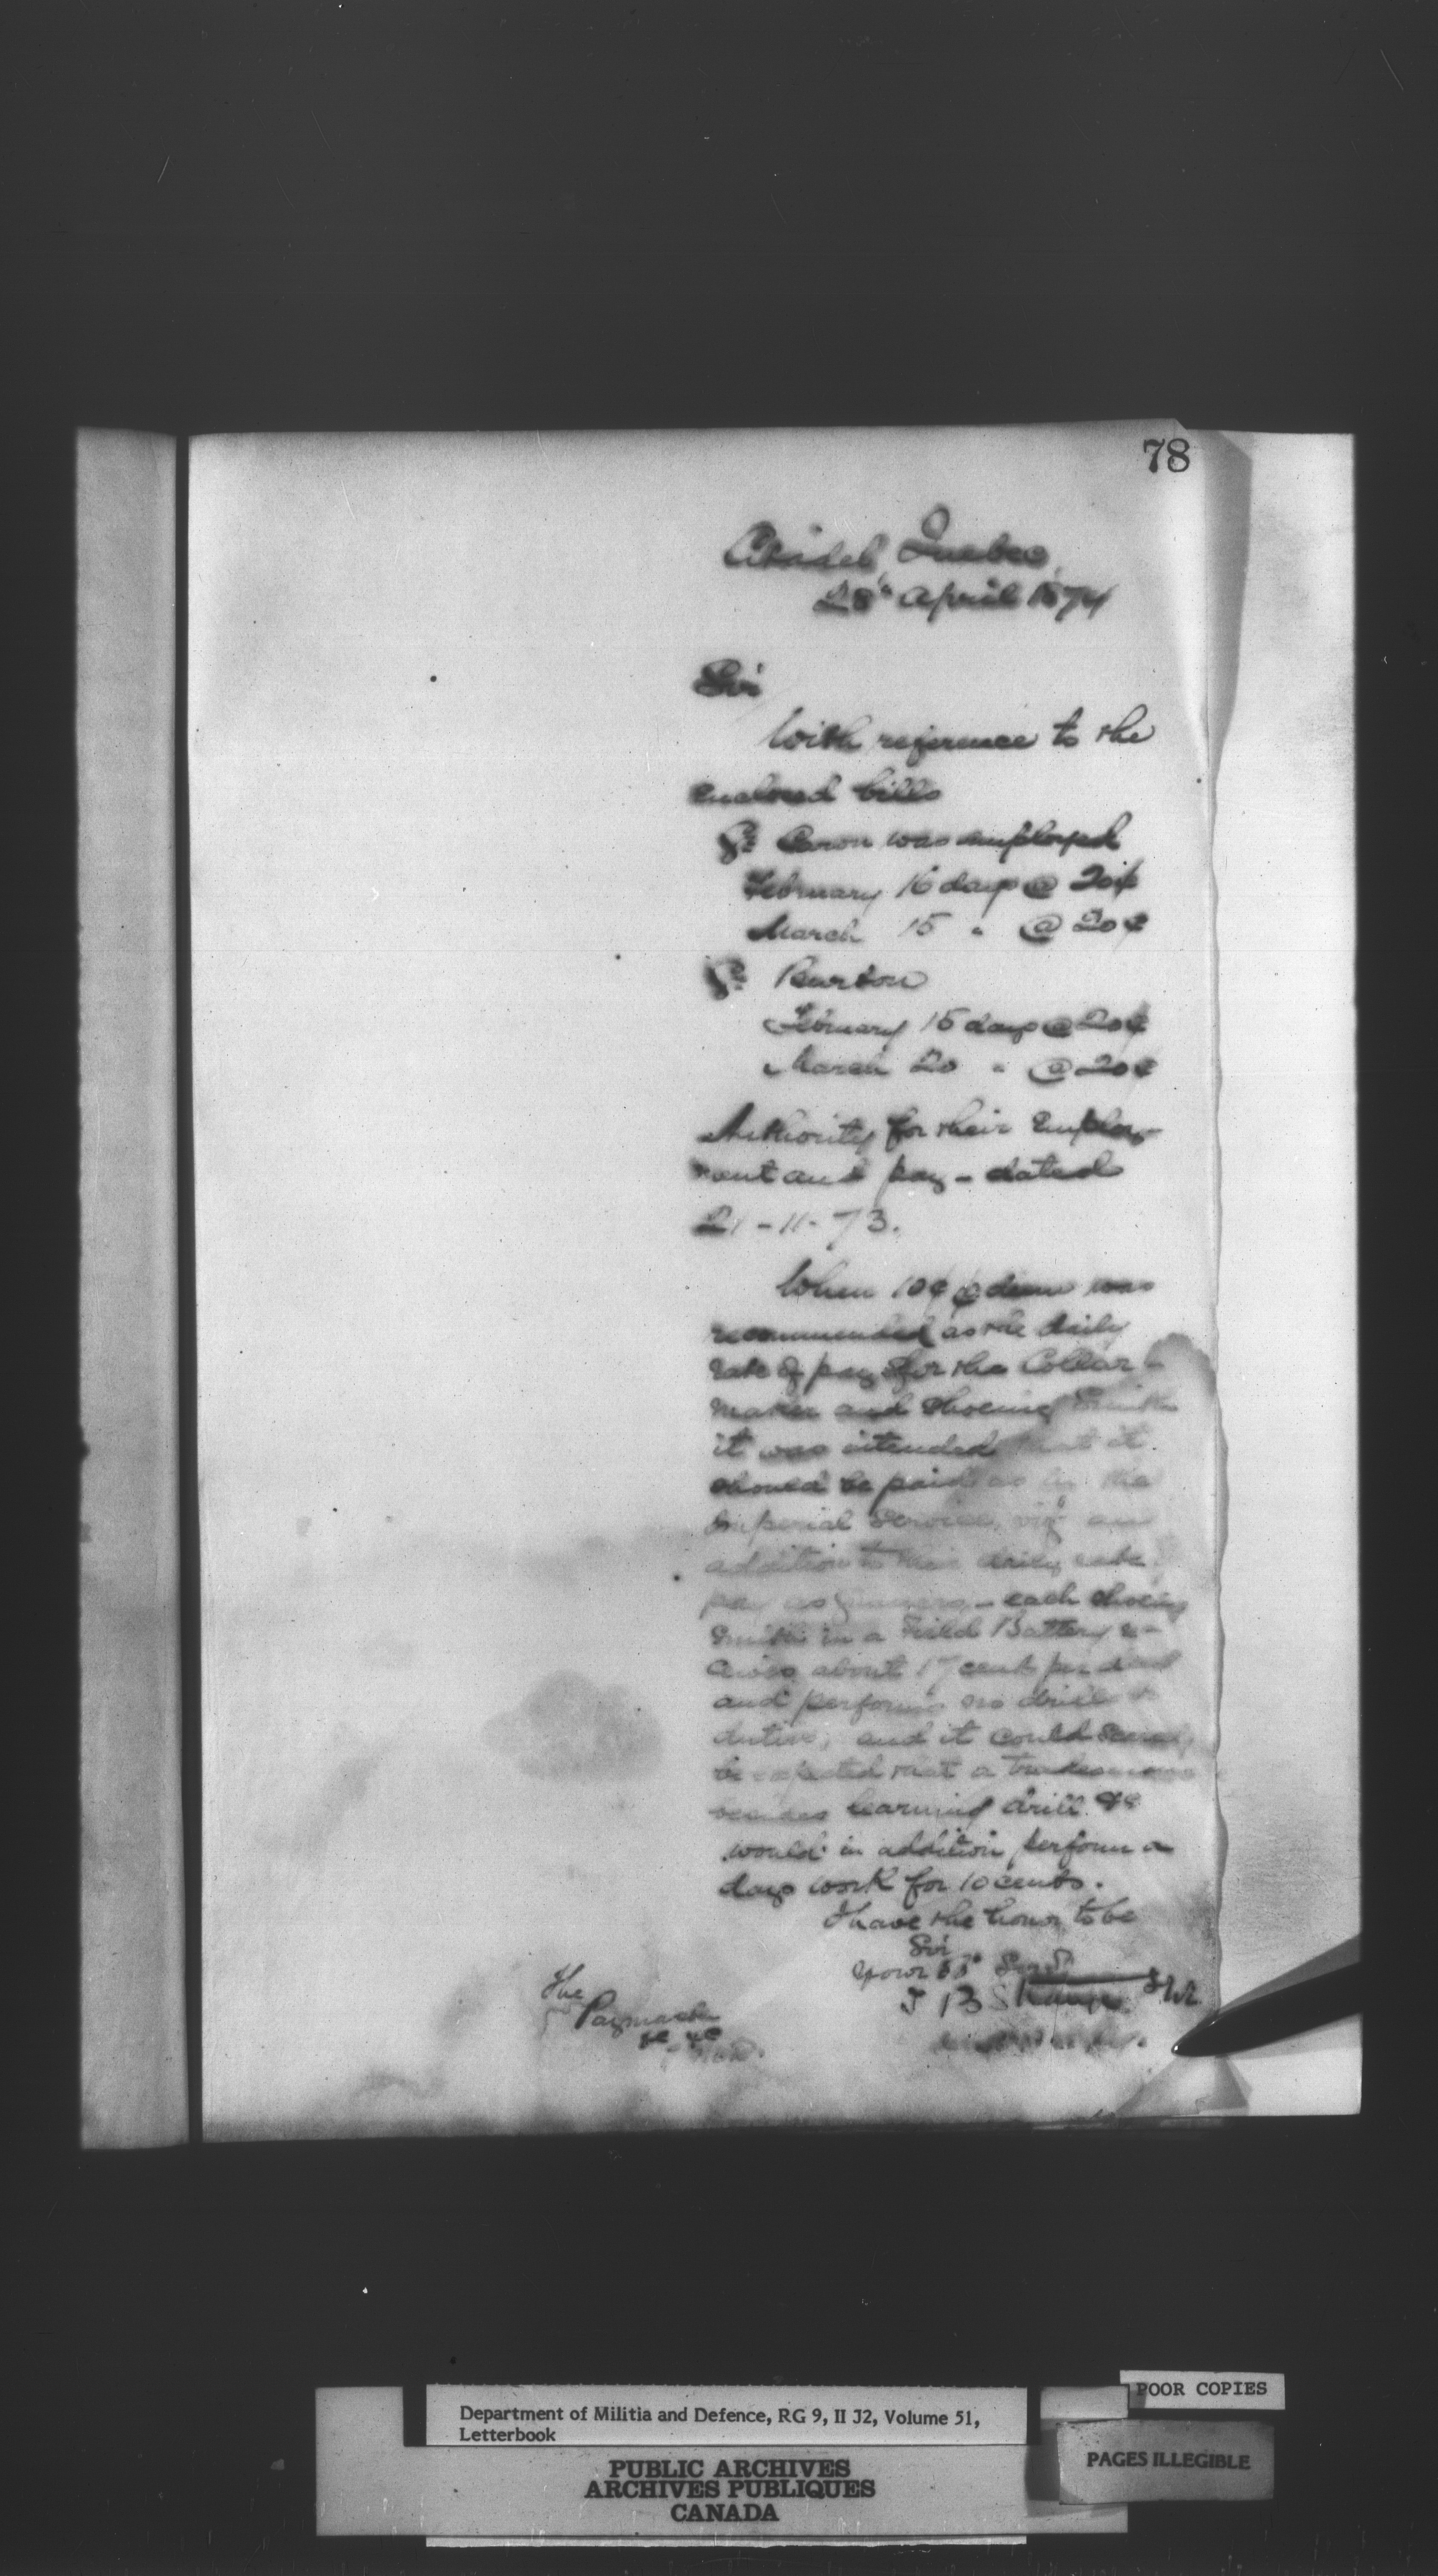 78
Citadel, Quebec,
28th April 1874
Sir
With reference to the
enclosed bills
Gr Caron was employed
February 16 days @ 20¢
March 15 " @ 20¢
Gr Burton
February 15 days @ 20¢
March 20 " @ 20¢
Authority for their Employ-
ment and pay - dated
21-11-73.
When 10¢ @ diem was
recommended as the daily
rate of pay for the Collar-
maker and Shoeing Smith
it was intended that it
should be paid as in the
Imperial Service, viz an
addition to their daily rate
pay as Gunners - each shoeing
Smith in a Field Battery re-
ceives about 17 cents per diem
and performs no drill or
duties; and it could scarcely
be expected that a tradesman
besides learning drill &c
would in addition perform a
days work for 10 cents.
I have the honor to be
Sir
Your Obt Servt
T B Strange
The
Paymaster
&c &c
Department of Militia and Defence, RG 9, II J2, Volume 51,
Letterbook
PUBLIC ARCHIVES
ARCHIVES PUBLIQUES
CANADA
POOR COPIES
PAGES ILLEGIBLE